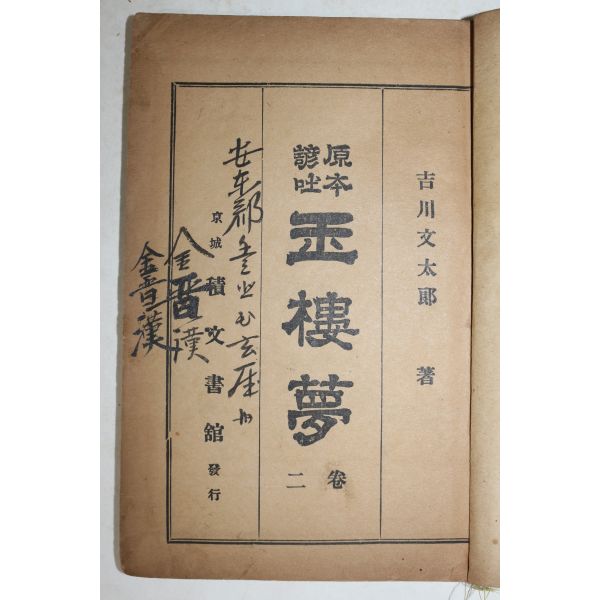 吉川文太郎 著
原本
諺吐
玉樓夢
卷二
京城 積文書舘 發行
安東郡
金晋漢
金晋漢